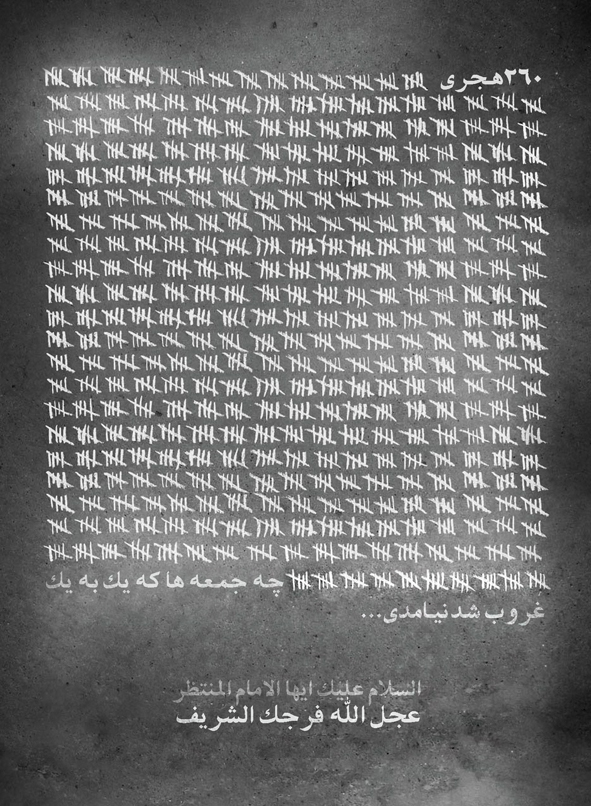 ۲۶۰هجری
چه جمعه ها که یك به یك
غروب شد نیامدی...
السلام علیك ایها الامام المنتظر
عجل الله فرجك الشریف